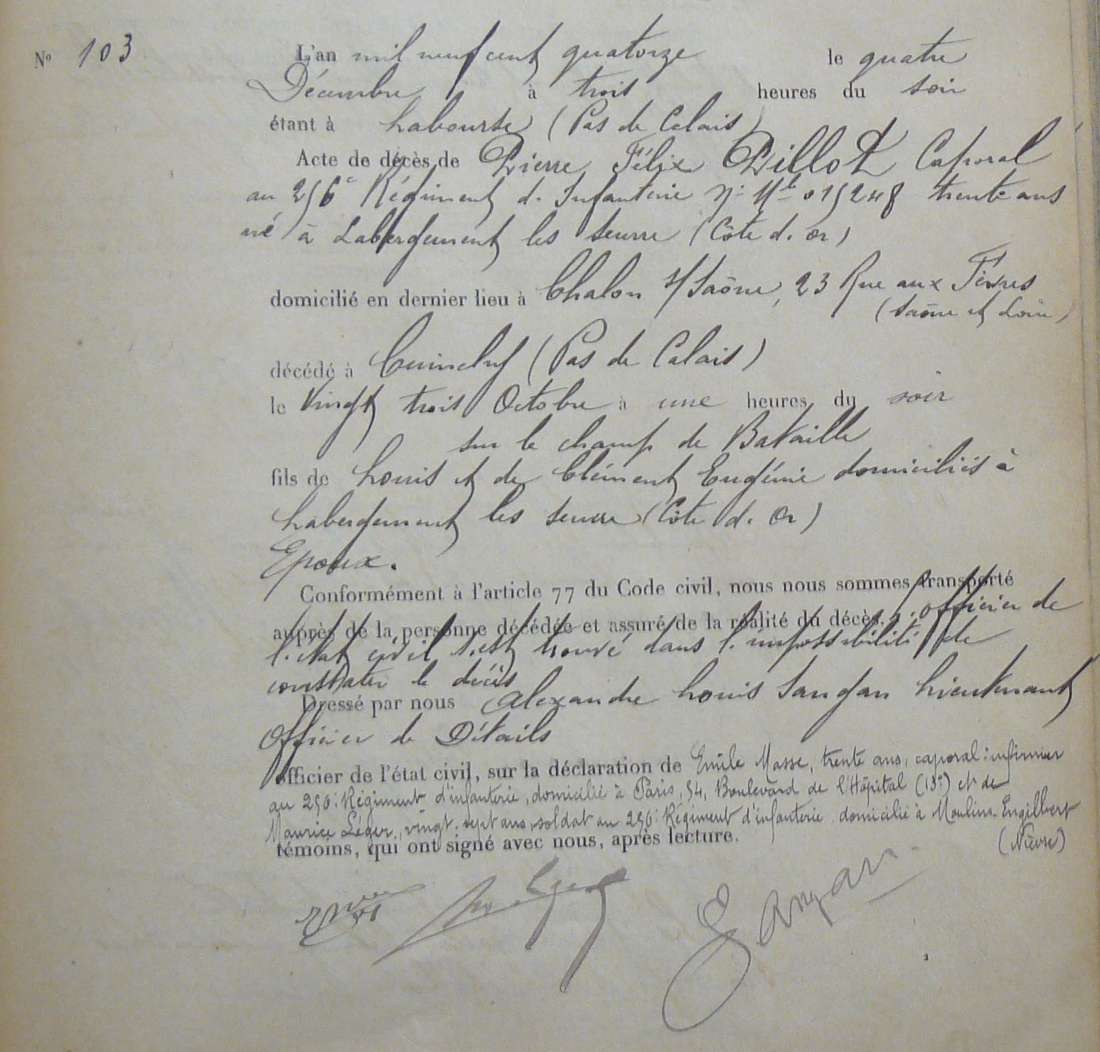 N° 103
L'an mil neuf cent quatorze le quatre
Décembre à trois heures du soir
étant à Labourse (Pas de Calais)
Acte de décès de Pierre Félix Pillot Caporal
au 256e Régiment d. Infanterie N° Mle 015248 trente ans
né à Labergement les Seurre (Côte d. Or)
domicilié en dernier lieu à Chalon s/Saône, 23 Rue aux Fèvres
(Saône et Loire)
décédé à Cuinchy (Pas de Calais)
le Vingt trois Octobre à une heures du soir
sur le champ de Bataille
fils de Louis et de Clément Eugénie domiciliés à
Labergement les Seurre (Côte d. Or)
Epoux.
Conformément à l'article 77 du Code civil, nous nous sommes transporté
auprès de la personne décédée et assuré de la réalité du décès, l'officier de
l'état civil s'est trouvé dans l'impossibilité de
constater le décès
Dressé par nous Alexandre Louis Lieutenant
Officier de Détails
officier de l'état civil, sur la déclaration de Emile Masse, trente ans, caporal infirmier
au 256e Régiment d'infanterie, domicilié à Paris, 54, Boulevard de l'Hôpital (13e) et de
Maurice Léger, vingt-sept ans, soldat au 256e Régiment d'infanterie domicilié à Moulins-Engilbert
témoins, qui ont signé avec nous, après lecture. (Nièvre)